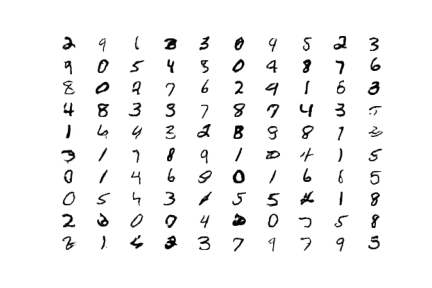 2 9 1 2 3 0 9 5 2 3
9 0 5 4 3 0 9 8 7 6
8 0 2 7 6 2 9 1 6 3
4 8 3 3 7 8 7 4 3
1 4 3 2 8 9 8 1
3 1 7 8 9 1 4 1 5
0 1 4 6 9 0 1 6 6 5
0 5 4 3 5 5 1 8
2 0 0 7 4 0 7 5 8
2 1 2 3 7 9 7 9 5